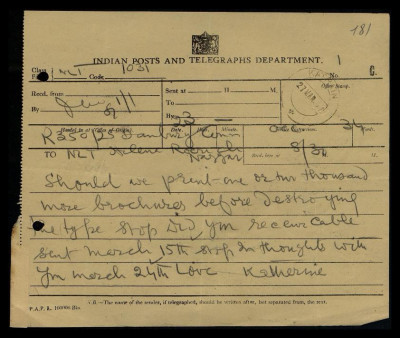 181
INDIAN POSTS AND TELEGRAPHS DEPARTMENT.
Class NLT Code 1031 No. 1 C.
Recd. from
By
1/1
Sent at H. M.
To
By
Office Stamp.
Handed in at (Office of Origin). Date. Hour. Minute.
R250/25 Danbury Conn 23 34
TO NLT Helene Roerich
Naggar
Recd. here at H. M.
8/34
Should we print one or two thousand
more brochures before destroying
the type stop Did you receive cable
sent march 15th stop In thoughts with
you march 24th Love Katherine
N.B.—The name of the sender, if telegraphed, should be written after, but separated from, the text.